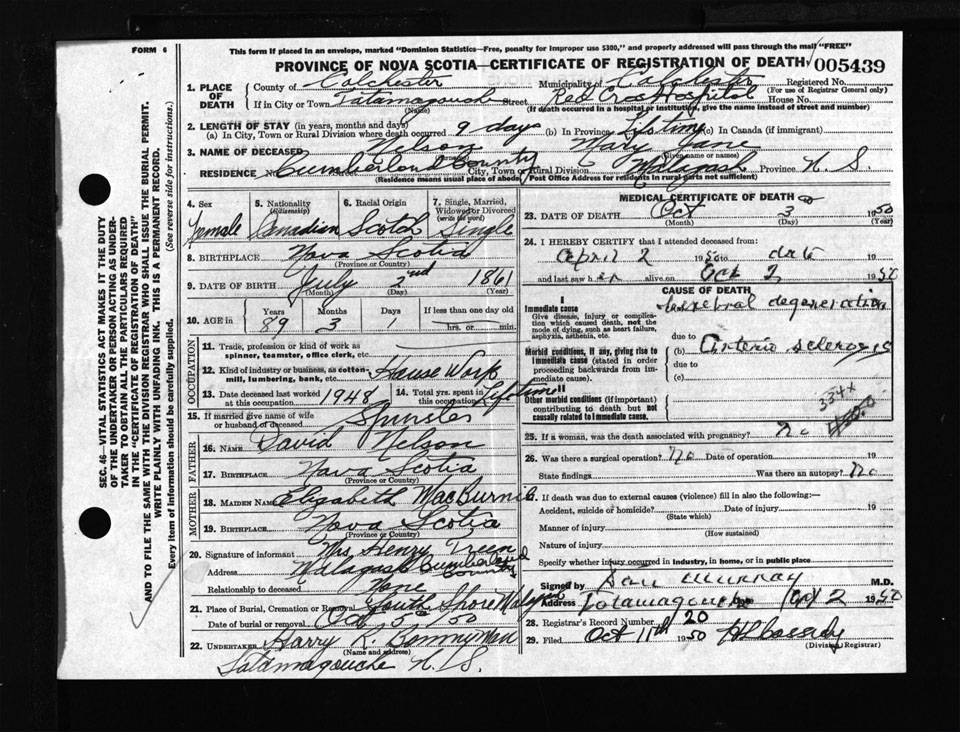 FORM 6
This form if placed in an envelope, marked "Dominion Statistics—Free, penalty for improper use $300," and properly addressed will pass through the mail "FREE"
PROVINCE OF NOVA SCOTIA—CERTIFICATE OF REGISTRATION OF DEATH
005439
1. PLACE OF DEATH
County of Colchester Municipality of Colchester Registered No.
(For use of Registrar General only)
If in City or Town Tatamagouche Street Red Cross Hospital House No.
(Name) (If death occurred in a hospital or institution, give the name instead of street and number)
2. LENGTH OF STAY (in years, months and days)
(a) In City, Town or Rural Division where death occurred 9 days (b) In Province Lifetime (c) In Canada (if immigrant)
3. NAME OF DECEASED Nelson Mary Jane
(Given name or names)
RESIDENCE No. Cumberland County City, Town or Rural Division Malagash Province N.S.
(Residence means usual place of abode. Post Office Address for residents in rural parts not sufficient)
4. Sex Female
5. Nationality (Citizenship) Canadian
6. Racial Origin Scotch
7. Single, Married, Widowed or Divorced (write the word) Single
8. BIRTHPLACE Nova Scotia
(Province or Country)
9. DATE OF BIRTH July 2nd 1861
(Month) (Day) (Year)
10. AGE in Years 89 Months 3 Days 1 If less than one day old hrs. or min.
OCCUPATION
11. Trade, profession or kind of work as spinner, teamster, office clerk, etc.
12. Kind of industry or business, as cotton-mill, lumbering, bank, etc. House Work
13. Date deceased last worked at this occupation 1948
14. Total yrs. spent in this occupation Lifetime
15. If married give name of wife or husband of deceased Spinster
FATHER
16. NAME David Nelson
17. BIRTHPLACE Nova Scotia
(Province or Country)
MOTHER
18. MAIDEN NAME Elizabeth MacBurnie
19. BIRTHPLACE Nova Scotia
(Province or Country)
20. Signature of informant Mrs. Henry Treen
Address Malagash Cumberland County
Relationship to deceased None
21. Place of Burial, Cremation or Removal South Shore Malagash
Date of burial or removal Oct 5 1950
22. UNDERTAKER Harry R. Bonnyman
(Name and address)
Tatamagouche N.S.
MEDICAL CERTIFICATE OF DEATH
23. DATE OF DEATH Oct 3 1950
(Month) (Day) (Year)
24. I HEREBY CERTIFY that I attended deceased from:
April 2 1950 to date
and last saw her alive on Oct 2 1950
CAUSE OF DEATH
I
Immediate cause
Give disease, injury or complication which caused death, not the mode of dying, such as heart failure, asphyxia, asthenia, etc.
cerebral degeneration
due to
Morbid conditions, if any, giving rise to immediate cause (stated in order proceeding backwards from immediate cause).
(b) Arterio sclerosis
due to
(c)
II
Other morbid conditions (if important) contributing to death but not causally related to immediate cause.
334x
25. If a woman, was the death associated with pregnancy? no
26. Was there a surgical operation? no Date of operation 19
State findings Was there an autopsy? no
27. If death was due to external causes (violence) fill in also the following:—
Accident, suicide or homicide? Date of injury 19
(State which)
Manner of injury
(How sustained)
Nature of injury
Specify whether injury occurred in industry, in home, or in public place
Signed by Dan Murray M.D.
Address Tatamagouche Oct 2 1950
28. Registrar's Record Number 20
29. Filed Oct 11th 1950
(Division Registrar)
SEC. 46—VITAL STATISTICS ACT MAKES IT THE DUTY OF THE UNDERTAKER OR PERSON ACTING AS UNDERTAKER TO OBTAIN ALL THE PARTICULARS REQUIRED IN THE "CERTIFICATE OF REGISTRATION OF DEATH" AND TO FILE THE SAME WITH THE DIVISION REGISTRAR WHO SHALL ISSUE THE BURIAL PERMIT.
WRITE PLAINLY WITH UNFADING INK. THIS IS A PERMANENT RECORD.
Every item of information should be carefully supplied. (See reverse side for instructions.)